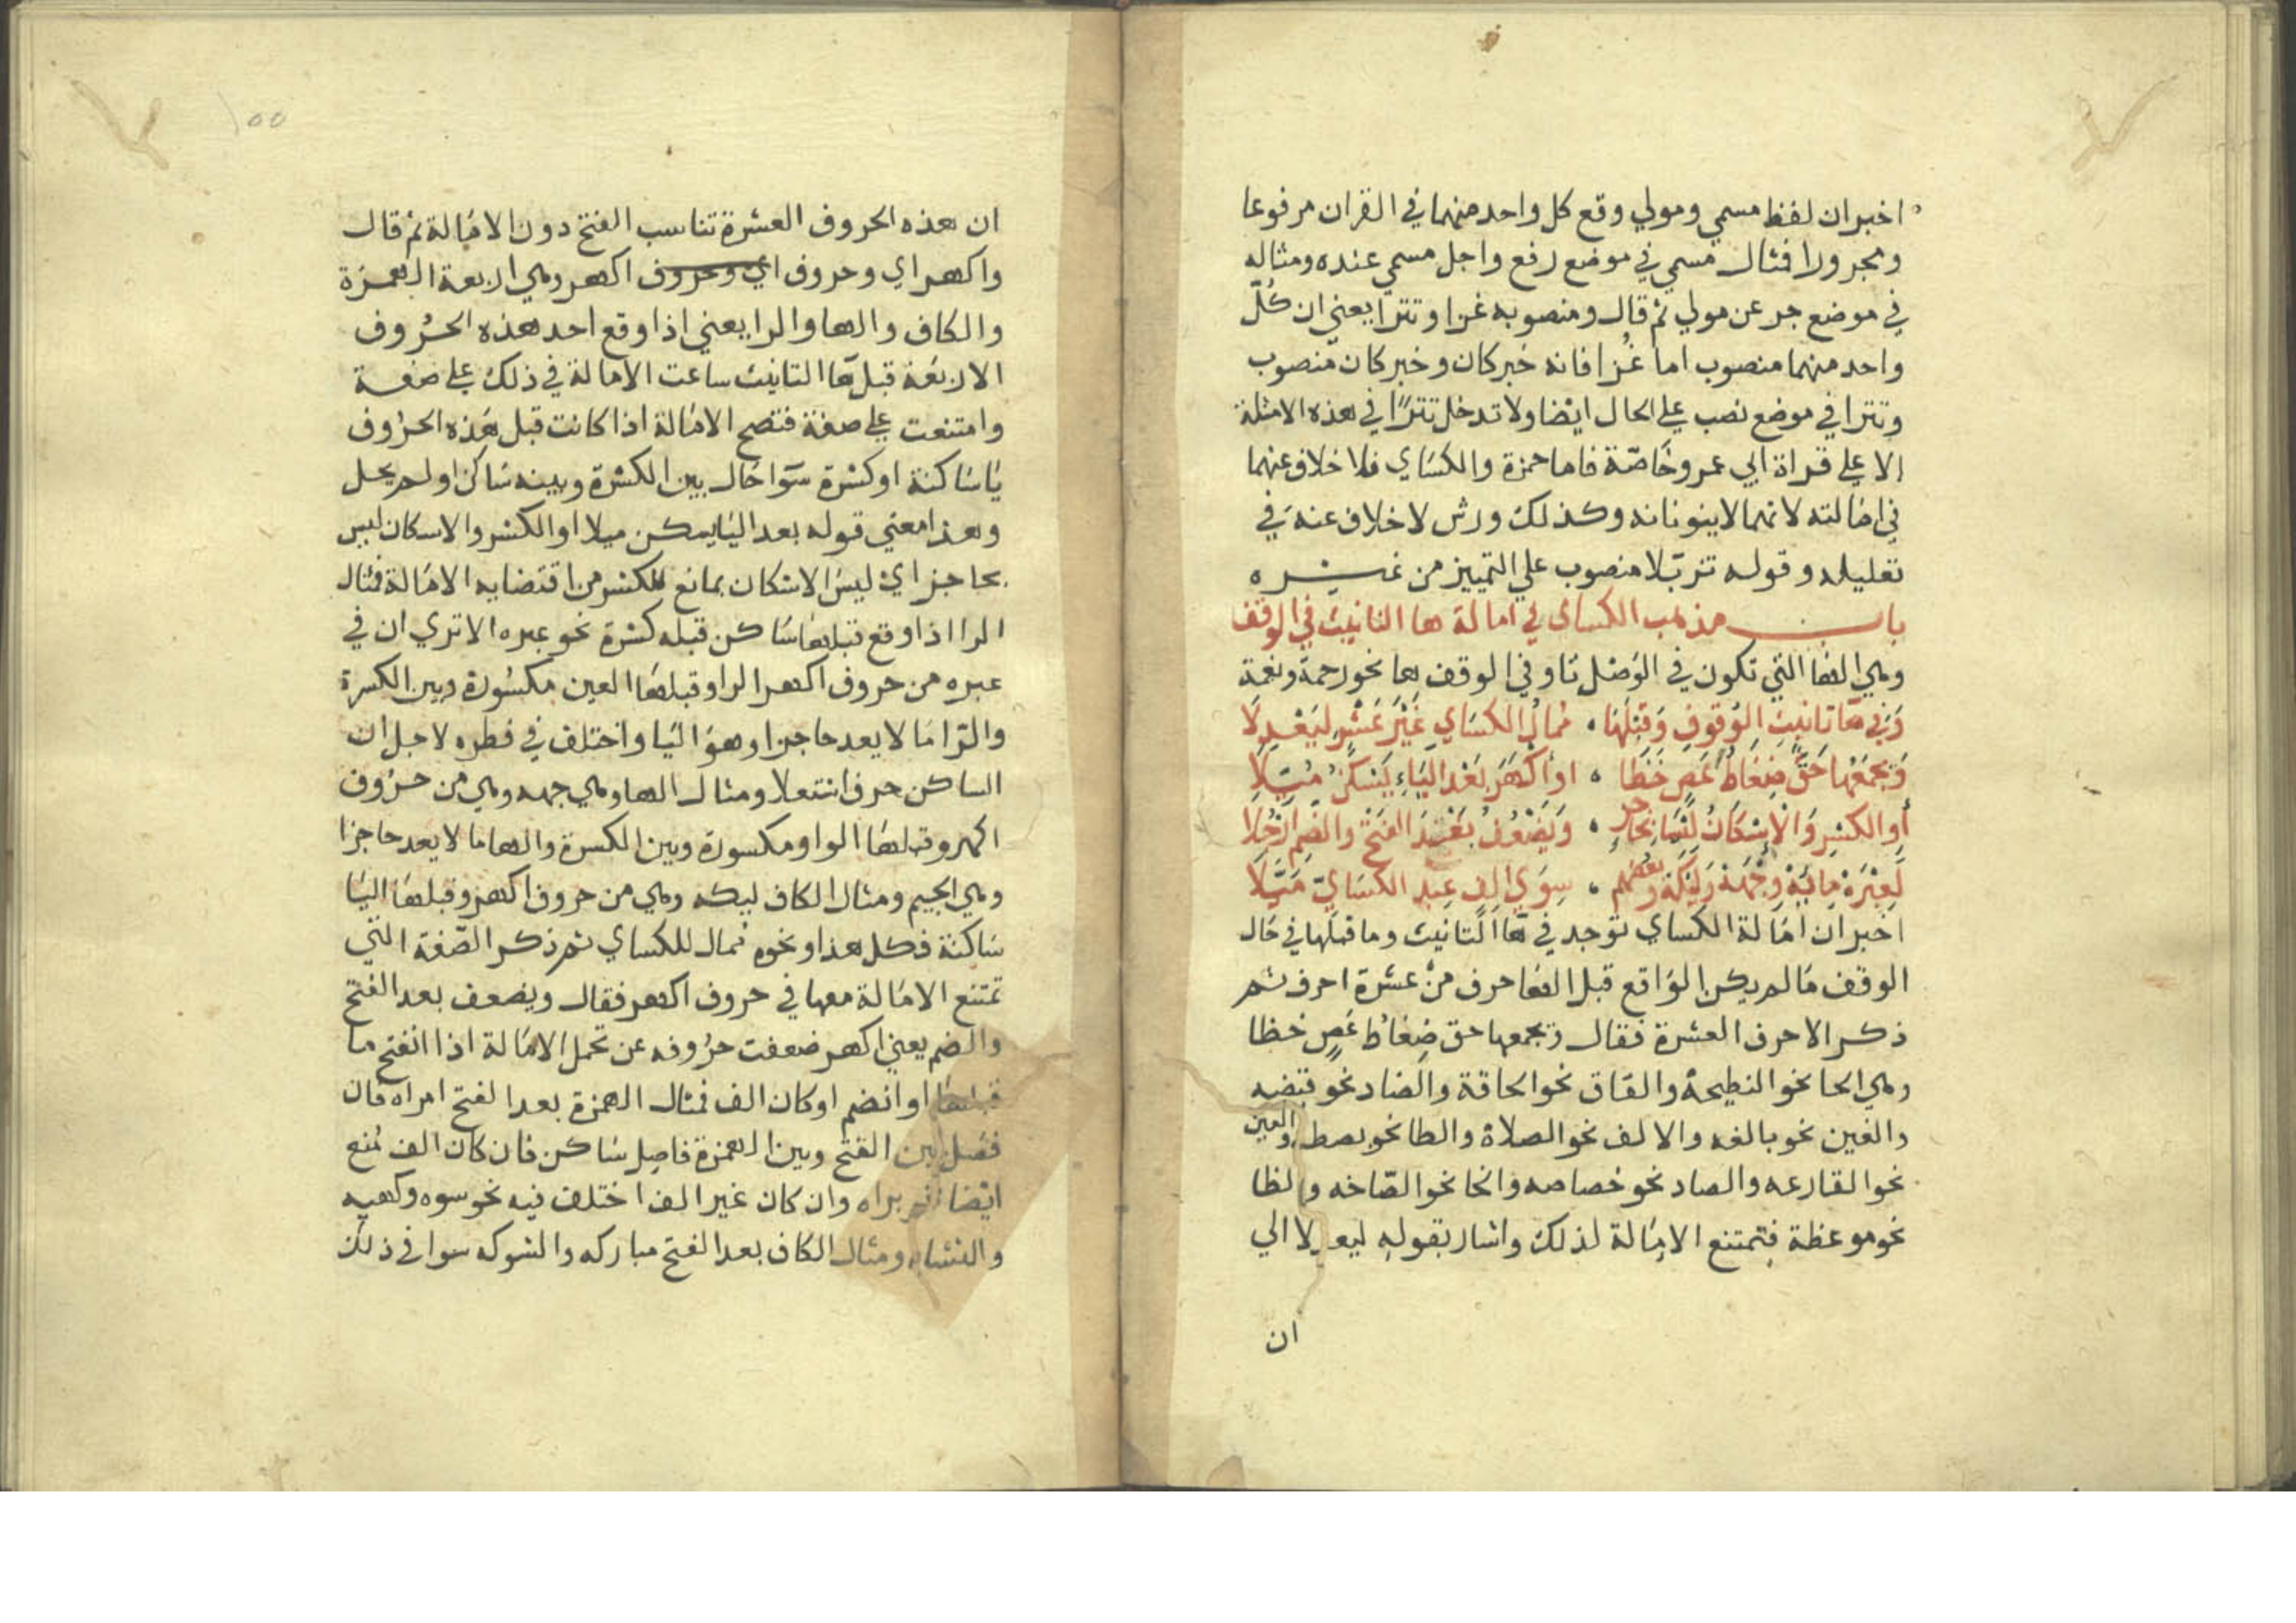 اخبر ان لفظ مسمي ومولي وقع كل واحد منهما في القران مرفوعا
ومجرورا فمثال مسمي في موضع رفع واجل مسمي عنده ومثاله
في موضع جر عن مولي ثم قال ومنصوبه غزا وتترا يعني ان كل
واحد منهما منصوب اما غزا فانه خبر كان وخبر كان منصوب
وتترا في موضع نصب علي الحال ايضا ولا تدخل تترا في هذه الامثلة
الا علي قراة ابي عمرو خاصة فاما حمزة والكساي فلا خلاف عنهما
في امالته لانهما لا ينونانه وكذلك ورش لا خلاف عنه في
تقليله وقوله تزيلا منصوب علي التمييز من غيره
باب مذهب الكساي في امالة ها التانيث في الوقف
وهي الها التي تكون في الوصل تا وفي الوقف ها نحو رحمة ونعمة
وَفي هَا تانيث الوُقوفِ وَقَبْلَهَا ، ممال الكسَاي غَيْرَ عَشْرٍ ليَعْدِلَا
وَيجمَعُها حَقٌّ ضِغَاطُ عَصٍ خَظَا ، او أكْهَرَ بَعْدَ اليَاءِ يَسْكنُ مُيّلَا
أوِ الكسْرِ وَالْإسْكَانُ ليْسَ بحَاجز ، وَيَضْعُفُ بَعْدَ الفَتْحِ والضَمِ ارْجُلَا
لَعِبْرَهْ مِائَهْ وِجْهَهْ وَلَيْكَهْ وبَعْضُهم ، سِوَي الِفٍ عِند الكسَايّ مَيَّلَا
اخبر ان امالة الكساي توجد في ها التانيث وما قبلها في حال
الوقف ما لم يكن الواقع قبل الها حرف من عشرة احرف ثم
ذكر الاحرف العشرة فقال ويجمعها حق ضغاط عص خظا
وهي الحا نحو النطيحة والقاف نحو الحاقة والضاد نحو قبضه
والغين نحو بالغه والالف نحو الصلاة والطا نحو بصطه والعين
نحو القارعه والصاد نحو خصاصه والخا نحو الصاخه والظا
نحو موعظة فتمتنع الامالة لذلك واشار بقوله ليعدلا الي
ان
١٥٥
ان هذه الحروف العشرة تناسب الفتح دون الامالة ثم قال
واكهر اي وحروف اي وحروف اكهر وهي اربعة الهمزة
والكاف والها والرا يعني اذا وقع احد هذه الحروف
الاربعة قبل ها التانيث ساعت الامالة في ذلك علي صفة
وامتنعت علي صفة فتصح الامالة اذا كانت قبل هذه الحروف
يا ساكنة او كسرة سوا حال بين الكسرة وبينه ساكن او لم يحل
وهذا معني قوله بعد اليا يسكن ميلا او الكسر والاسكان ليس
بحاجز اي ليس الاسكان بمانع للكسر من اقتضايه الامالة فمثال
الرا اذا وقع قبلها ساكن قبله كسرة نحو عبره الا تري ان في
عبره من حروف اكهر الرا وقبلها العين مكسورة وبين الكسرة
والرا ما لا يعد حاجزا وهو اليا واختلف في فطره لاجل ان
الساكن حرف استعلا ومثال الها وهي جهه وهي من حروف
اكهر وقبلها الواو مكسورة وبين الكسرة والها ما لا يعد حاجزا
وهي الجيم ومثال الكاف ليكه وهي من حروف اكهر وقبلها اليا
ساكنة فكل هذا ونحوه ممال للكساي ثم ذكر الصفة التي
تمتنع الامالة معها في حروف اكهر فقال ويضعف بعد الفتح
والضم يعني اكهر ضعفت حروفه عن تحمل الامالة اذا انفتح ما
قبلها او انضم او كان الف فمثال الهمزة بعد الفتح امراه فان
فصل بين الفتح وبين الهمزة فاصل ساكن فان كان الف منع
ايضا نحو براه وان كان غير الف اختلف فيه نحو سوه وكهيه
والنشاه ومثال الكاف بعد الفتح مباركه والشوكه سوا في ذلك